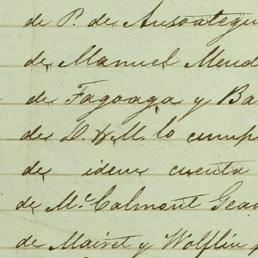 de P. de Ansoategui
de Manuel Mend
de Fagoaga y Ba
de D. H. M. lo cump
de idem cuenta
de McCalmont Gea
de Mairet y Wolflin p